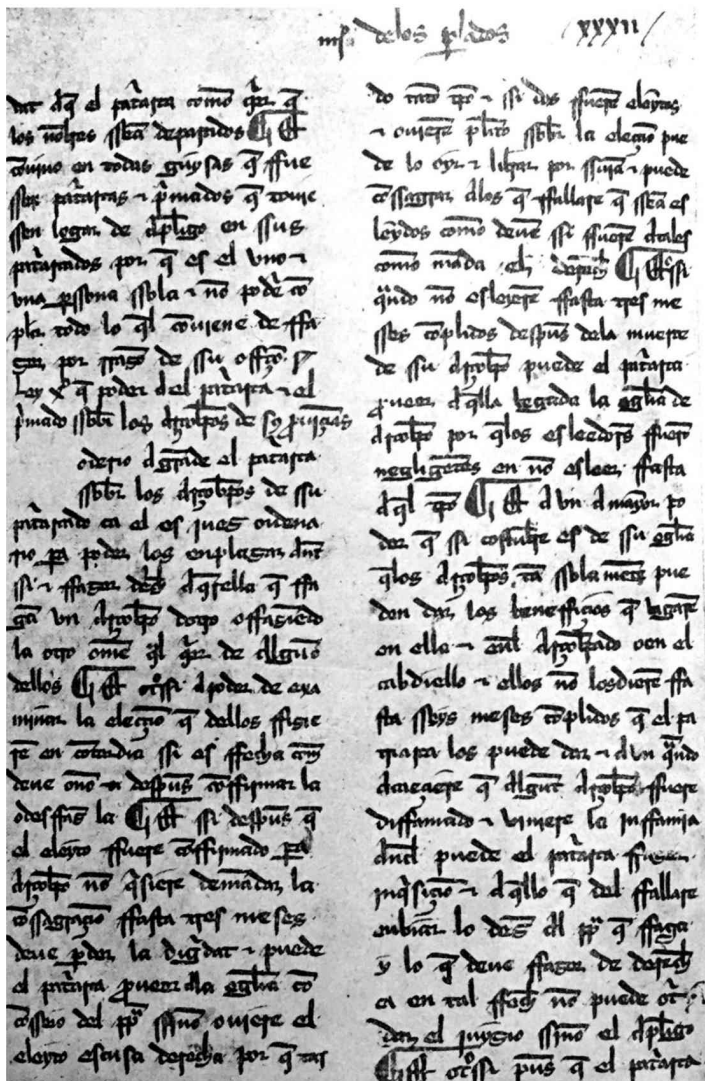 delos p̃lados xxxii
dat d̃q̃ el pat̃arca como q̃er q̃
los nõbres ssea departidos Et
conuino en todas guysas q̃ ffue
ssen pat̃arcas ⁊ p̃mados q̃ touie
ssen logar de apl̃igo en ssus
pat̃arcados por q̃ es el vno ⁊
vna p̃ssona ssola ⁊ nõ podẽ cõ
plir todo lo q̃l cõuiene de ffa
ger por rragõ de ssu offiçio
Ley xª q̃ poder a el pat̃arca ⁊ el
p̃mado ssobre los arçob̃pos de sy prouiçias
oderio a grãde el pat̃arca
ssob̃r los arçob̃pos de ssu
pat̃arcado ca el es iueg ordena
rio p̃a poder los enplagar ãnt
ssi ⁊ ffager der̃ch d̃q̃rella q̃ ffa
gã vn arçob̃po dotro o ffagiẽdo
la otro om̃e q̃l q̃er de algũo
dellos Et ot̃ssi a poder de exa
minar la elecçiõ q̃ dellos ffigie
rẽ en cõcordia ssi es ffecha com̃
deue o nõ ⁊ despũs cõffirmar la
o desffag̃ la Et ssi despũs q̃
el eleyto ffuere cõffirmado p̃a
arçob̃po nõ q̃siere demãdar la
cõssagraçiõ ffasta tres meses
deue p̃der la dig̃dat ⁊ puede
el pat̃arca p̃ueer ala egl̃ia cõ
cõsseio del pp̃ ssino ouiere el
eleyto escusa derecha por q̃ tar
do tãto tp̃o ⁊ ssi dos ffuerẽ eleytos
⁊ ouierẽ pl̃ito ssob̃r la elecçiõ pue
de lo oyr ⁊ librar por ssu iuỹ ⁊ puede
cõssagrar alos q̃ ffallare q̃ sseã es
leydos como deuẽ ssi ffuerẽ atales
como mãda el der̃ch Et ot̃ssi
q̃ndo nõ esleyerẽ ffasta tres me
sses cõplidos despũs dela muerte
de ssu arçob̃po puede el pat̃arca
p̃ueer aq̃lla vegada la egl̃ia de
arçob̃po por q̃los esleedor̃s ffuerõ
negligẽtes en nõ esleer ffasta
aq̃l tp̃o Et avn a mayor po
der q̃ ssi costũbre es de ssu egl̃ia
q̃los arçob̃pos tã ssola mẽte pue
den dar los benefficios q̃ vagarẽ
en ella ⁊ enl arçob̃pado o en el
cabdiello ⁊ ellos nõ los dierẽ ffa
sta sseys meses cõplidos q̃ el pa
triarca los puede dar ⁊ avn q̃ndo
acaeçiere q̃ algũt arçob̃po ffuere
diffamado ⁊ viniere la inffamia
ãntel puede el pat̃arca ffager
inq̃siçiõ ⁊ aq̃llo q̃ del ffallare
enbiar lo deg̃ al pp̃ q̃ ffaga
y lo q̃ deue ffager de der̃ch
ca en tal ffech nõ puede ot̃
dar el iuygio ssino el apl̃igo
Et ot̃ssi pũs q̃ el pat̃arca